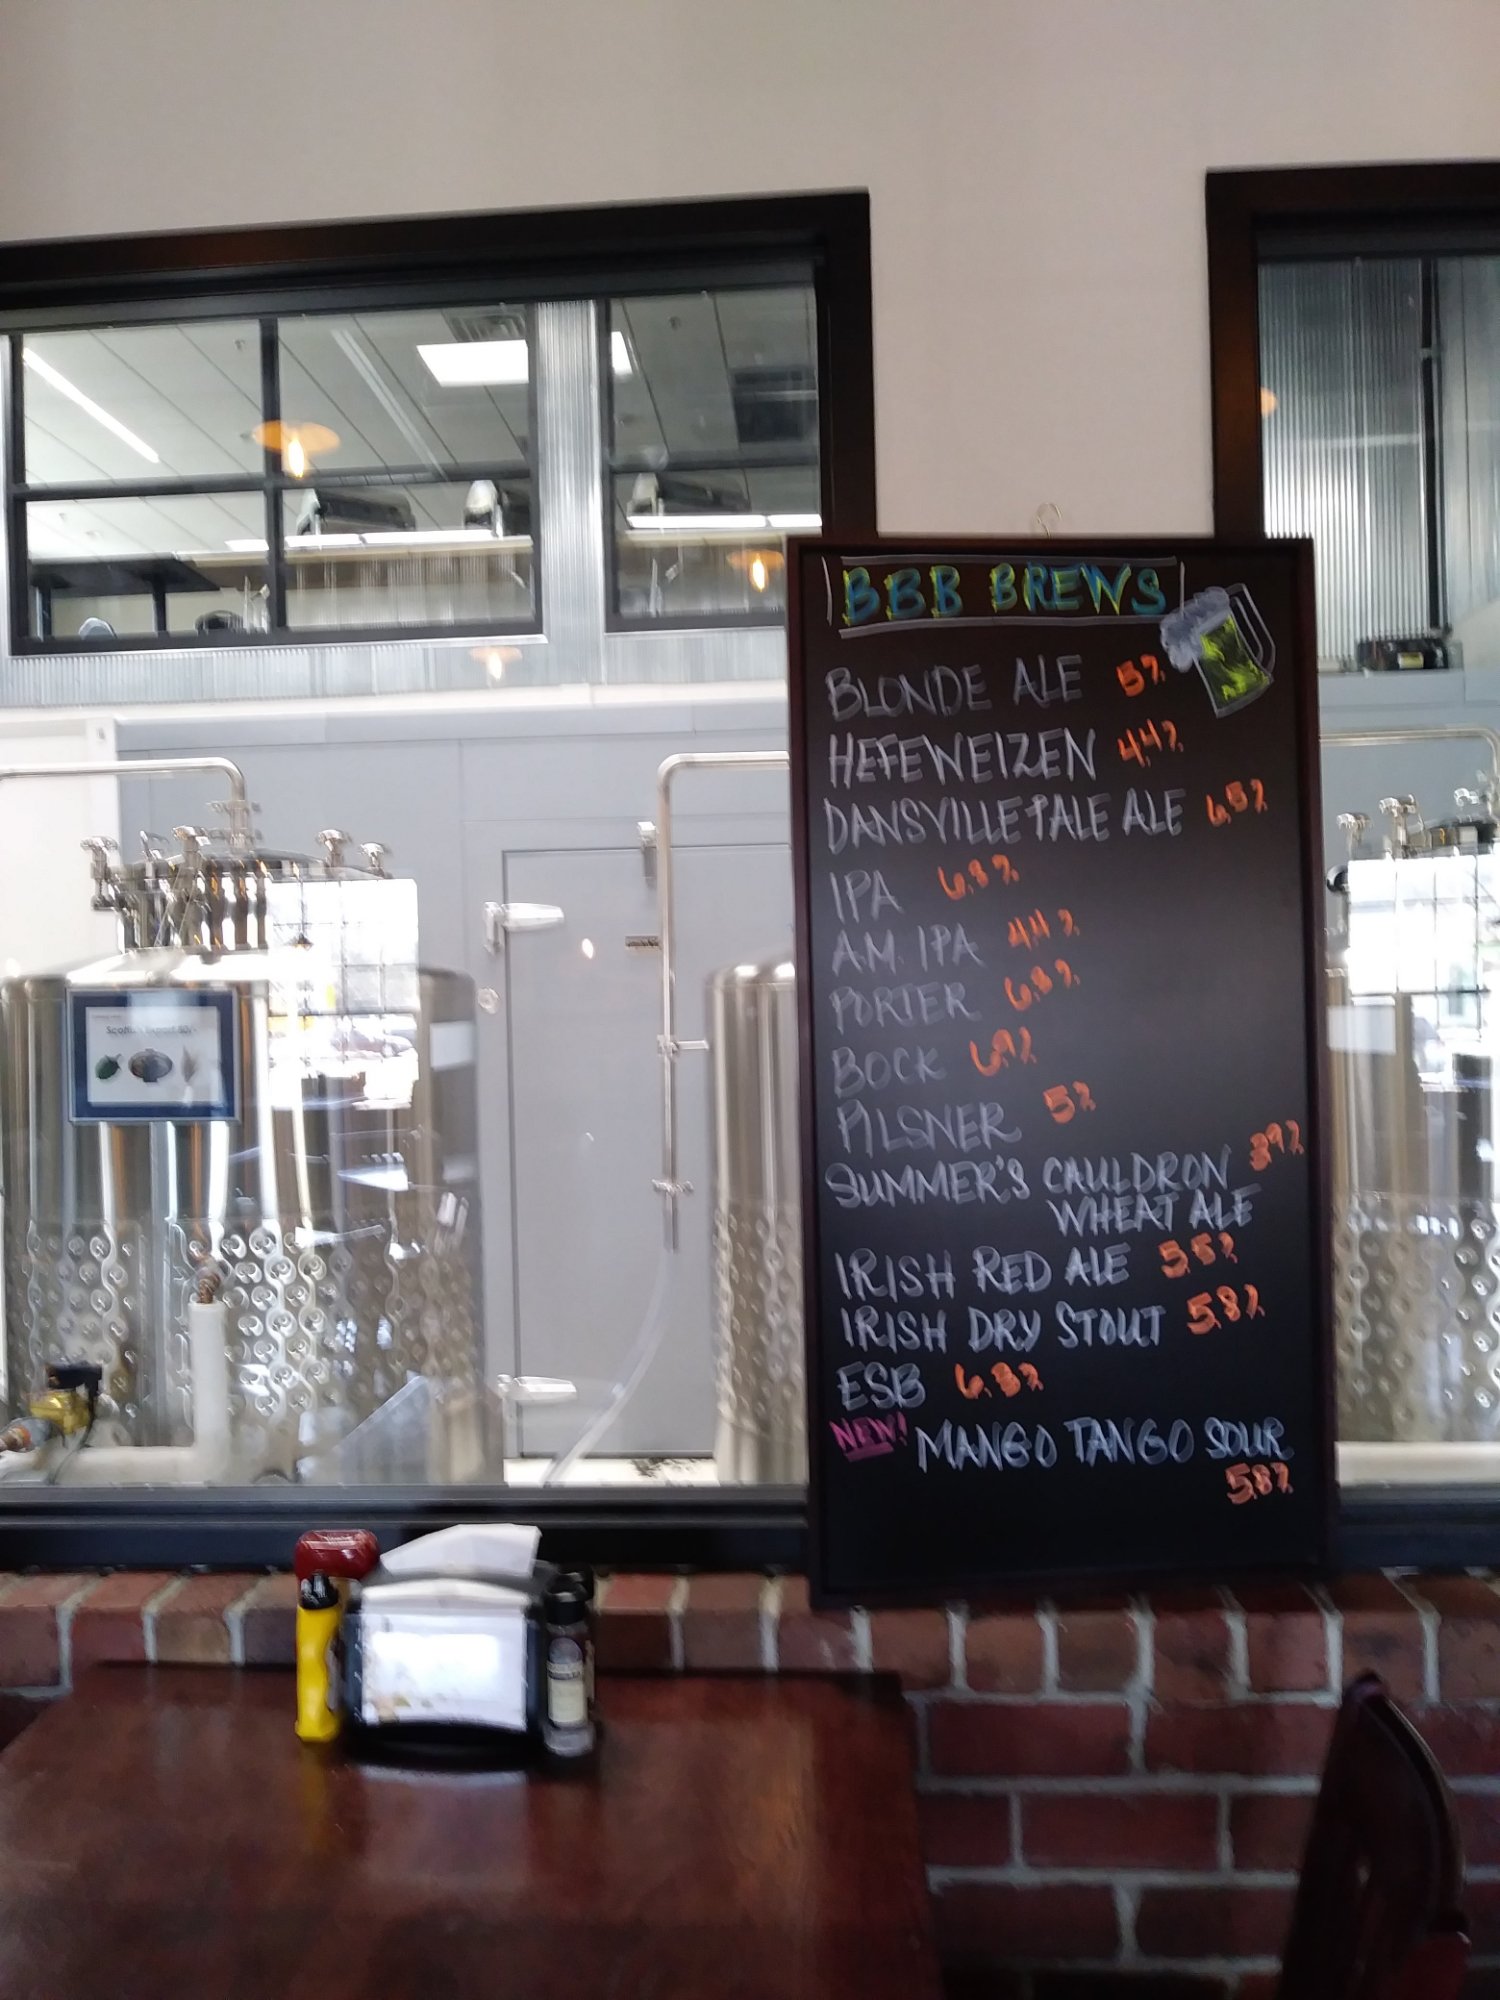 BBB BREWS
BLONDE ALE 5%
HEFEWEIZEN 4.4%
DANSVILLE PALE ALE 6.5%
IPA 6.3%
A.M. IPA 4.4%
PORTER 6.3%
BOCK
PILSNER 5%
SUMMER'S CAULDRON 3.9%
WHEAT ALE
IRISH RED ALE 5.5%
IRISH DRY STOUT 5.8%
ESB 6.3%
NEW! MANGO TANGO SOUR
5.8%